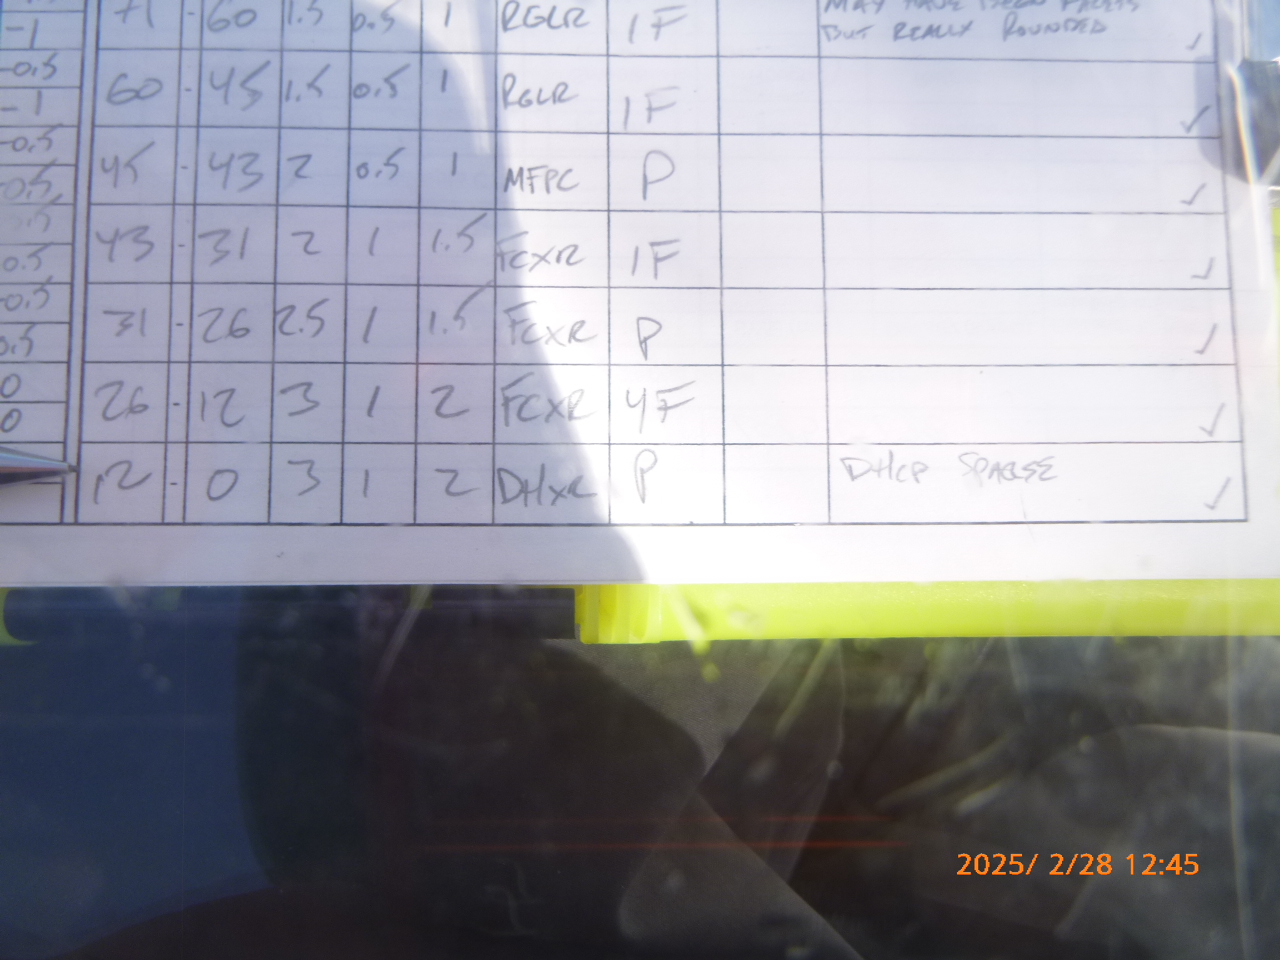 -1 71 - 60 1.5 0.5 1 RGLR 1F
BUT REALLY ROUNDED ✓
-0.5
-1 60 - 45 1.5 0.5 1 RGLR 1F ✓
-0.5
0.5 45 - 43 2 0.5 1 MFPC P ✓
0.5 43 - 31 2 1 1.5 FCXR 1F ✓
-0.5
0.5 31 - 26 2.5 1 1.5 FCXR P ✓
0
0 26 - 12 3 1 2 FCXR 4F ✓
12 - 0 3 1 2 DHXR P DHCP SPARSE ✓
2025/ 2/28 12:45